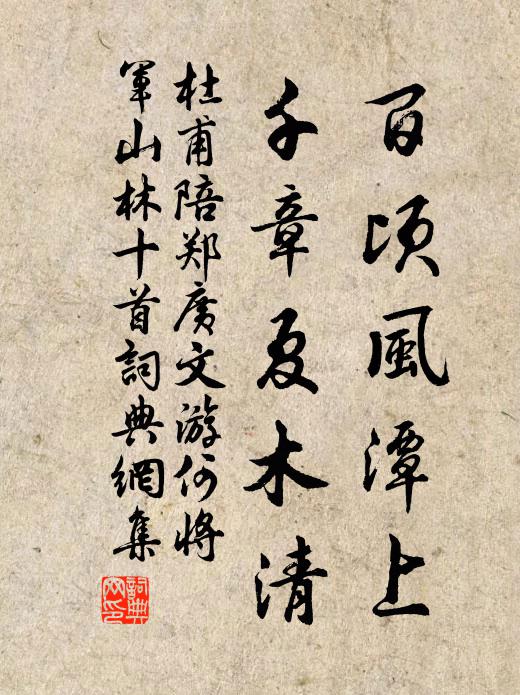 百頃風潭上
千章夏木清
杜甫陪郑廣文游何將
軍山林十首詞典網集
詞典
网印